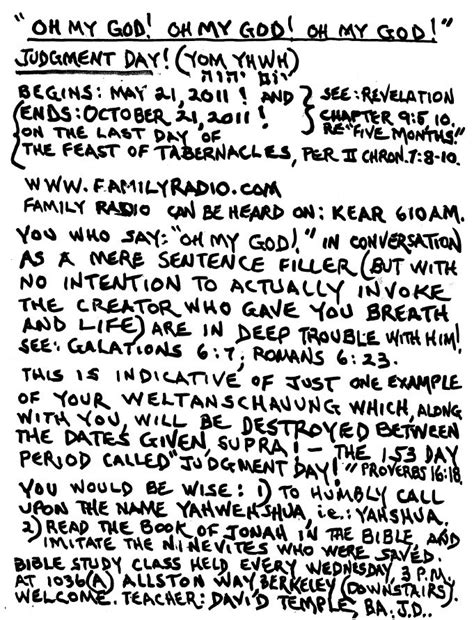 "OH MY GOD! OH MY GOD! OH MY GOD!"
JUDGMENT DAY! (YOM YHWH)
יום יהוה
BEGINS: MAY 21, 2011! AND } SEE: REVELATION
(ENDS: OCTOBER 21, 2011! CHAPTER 9:5, 10.
ON THE LAST DAY OF RE "FIVE MONTHS."
THE FEAST OF TABERNACLES, PER II CHRON. 7:8-10.
WWW.FAMILYRADIO.COM
FAMILY RADIO CAN BE HEARD ON: KEAR 610 AM.
YOU WHO SAY: "OH MY GOD!" IN CONVERSATION
AS A MERE SENTENCE FILLER (BUT WITH
NO INTENTION TO ACTUALLY INVOKE
THE CREATOR WHO GAVE YOU BREATH
AND LIFE) ARE IN DEEP TROUBLE WITH HIM!
SEE: GALATIONS 6:7; ROMANS 6:23.
THIS IS INDICATIVE OF JUST ONE EXAMPLE
OF YOUR WELTANSCHAUUNG WHICH, ALONG
WITH YOU, WILL BE DESTROYED BETWEEN
THE DATES GIVEN, SUPRA! – THE 153 DAY
PERIOD CALLED "JUDGMENT DAY!" PROVERBS 16:18.
YOU WOULD BE WISE: 1) TO HUMBLY CALL
UPON THE NAME YAHWEHSHUA, i.e.: YAHSHUA.
2) READ THE BOOK OF JONAH IN THE BIBLE, AND
IMITATE THE NINEVITES WHO WERE SAVED.
BIBLE STUDY CLASS HELD EVERY WEDNESDAY, 3 P.M.,
AT 1036(A) ALLSTON WAY, BERKELEY (DOWNSTAIRS).
WELCOME. TEACHER: DAVID TEMPLE, BA., J.D..